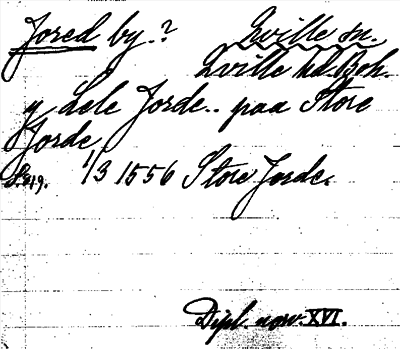 Jored by.? Qville sn.
Qville hd. Boh.
y Lele Jorde.. paa Store
Jorde
S. 219. 1/3 1556 Store Jorde.
Dipl. norv. XVI.